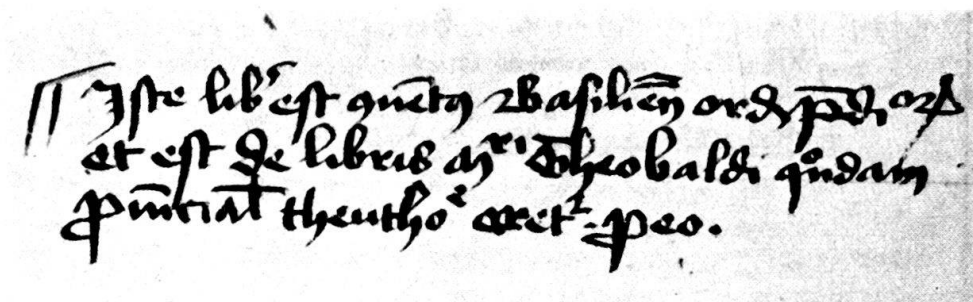 Iste lib' est 9uēt9 Basiliēn̄ ord' p̄di
et est de libris mr̄i Theobaldi qn̊dam
p̄uīcial̄ theuthoe Oretr . p eo .